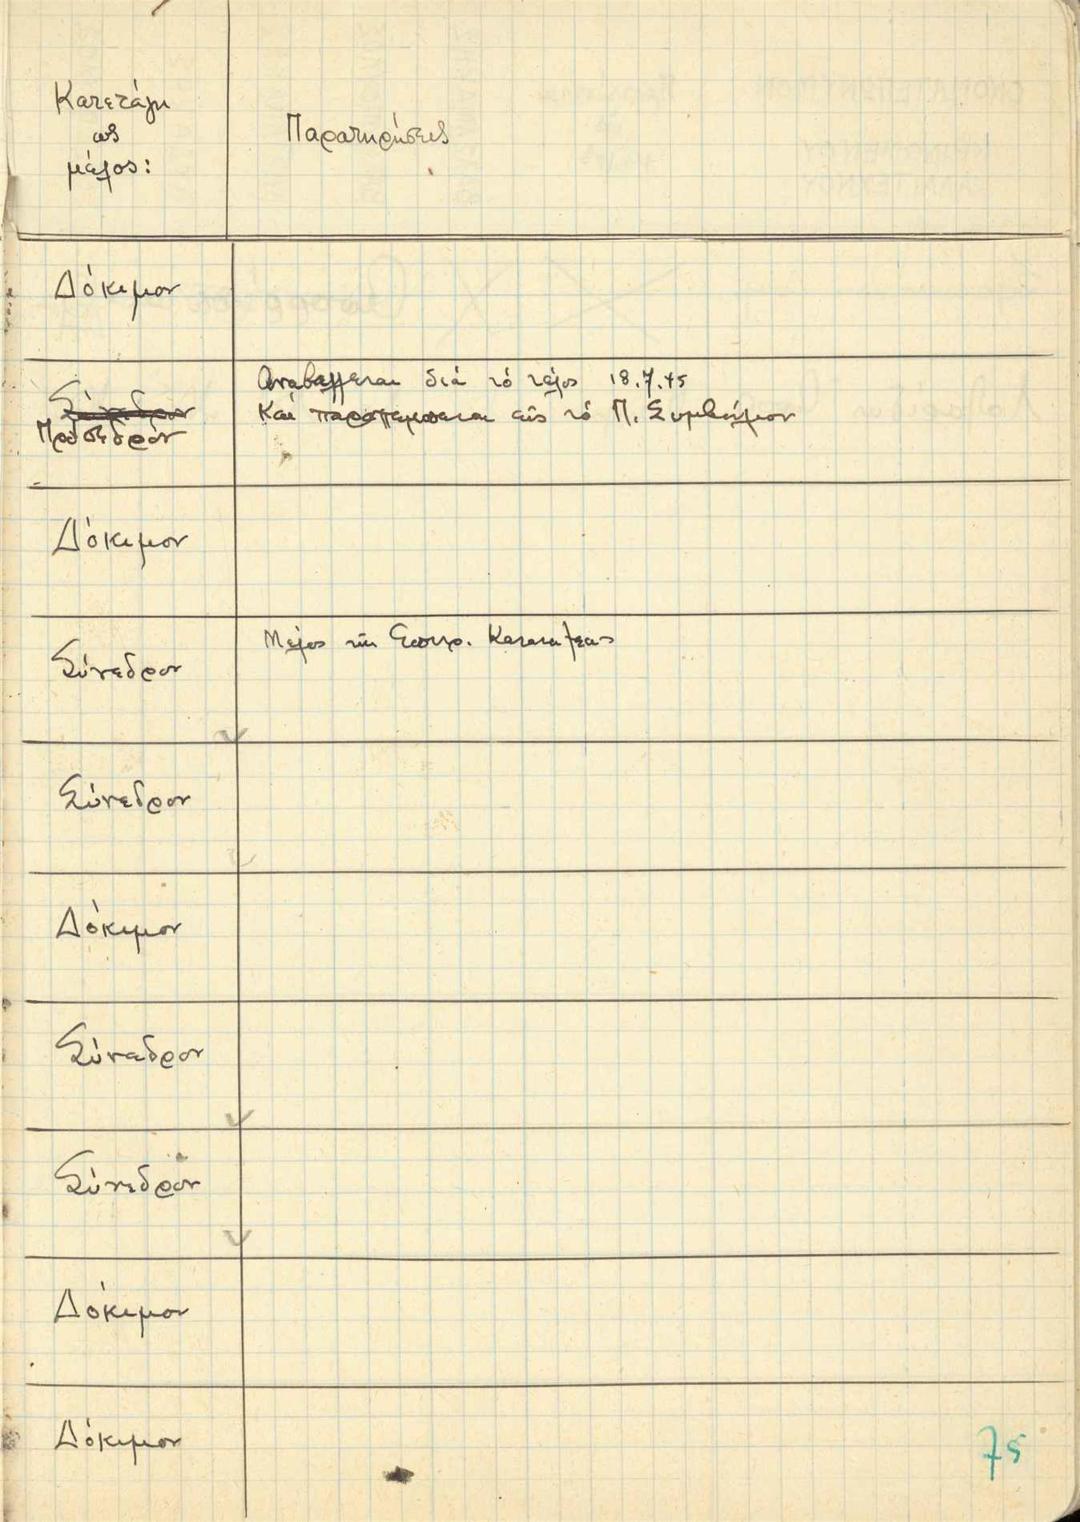 Κατετάγη
ως
μέλος:
Παρατηρήσεις
Δόκιμον
Αναβάλλεται διά τό τέλος 18.7.45
Σύνεδρον
Πρόσεδρον
Και παραπέμπεται εις τό Π. Συμβούλιον
Δόκιμον
Μέλος της Επιτρ. Κατατάξεως
Σύνεδρον
Σύνεδρον
Δόκιμον
Σύνεδρον
Σύνεδρον
Δόκιμον
Δόκιμον
75